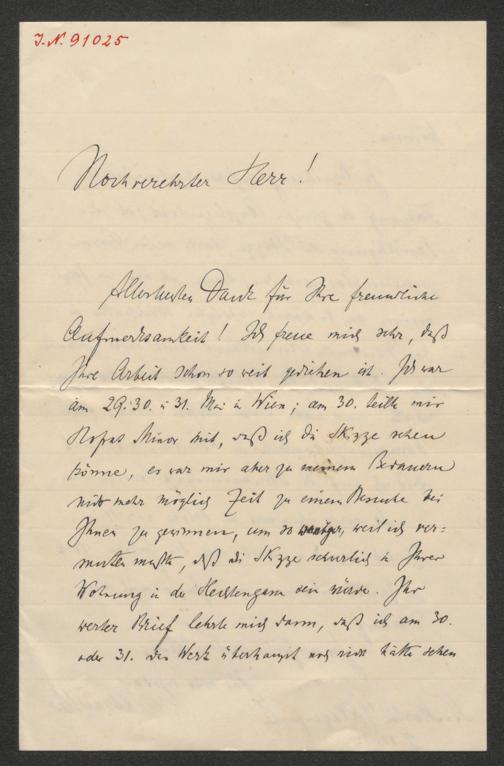 J.N. 91025
Hochverehrter Herr!
Allerbesten Dank für Ihre freundliche
Aufmerksamkeit! Ich freue mich sehr, daß
Ihre Arbeit schon so weit gediehen ist. Ich war
am 29. 30. u 31. Mai in Wien; am 30. teilte mir
Hofrat Minor mit, daß ich die Skizze sehen
könne, es war mir aber zu meinem Bedauern
nicht mehr möglich Zeit zu einem Besuche bei
Ihnen zu gewinnen, um so weniger, weil ich ver=
muten mußte, daß die Skizze schwerlich in Ihrer
Wohnung in der sein würde. Ihr
werter Brief lehrte mich dann, daß ich am 30.
oder 31. das Werk überhaupt noch nicht hätte sehen